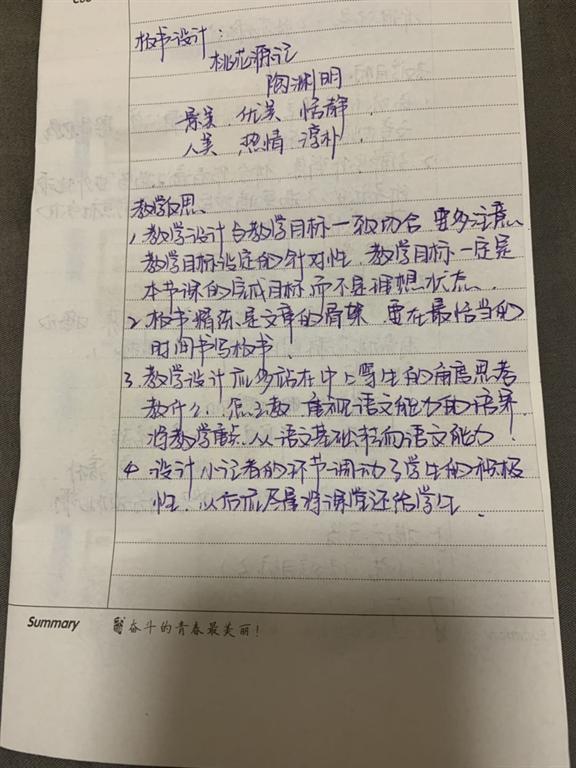 板书设计：
桃花源记
陶渊明
景美 优美 恬静
人美 热情 淳朴
教学反思
1、教学设计与教学目标一致切合 要多注意
教学目标设定的针对性 教学目标一定是
本节课的完成目标 而不是理想状态.
2、板书精炼是文章的骨架 要在最恰当的
时间书写板书.
3、教学设计应多站在中上等生的角度思考
教什么、怎么教 重视语文能力的培养
将教学重点从语文基础转向语文能力.
4、设计小记者的环节调动了学生的积极
性 以后应尽量将课堂还给学生.
Summary
奋斗的青春最美丽！